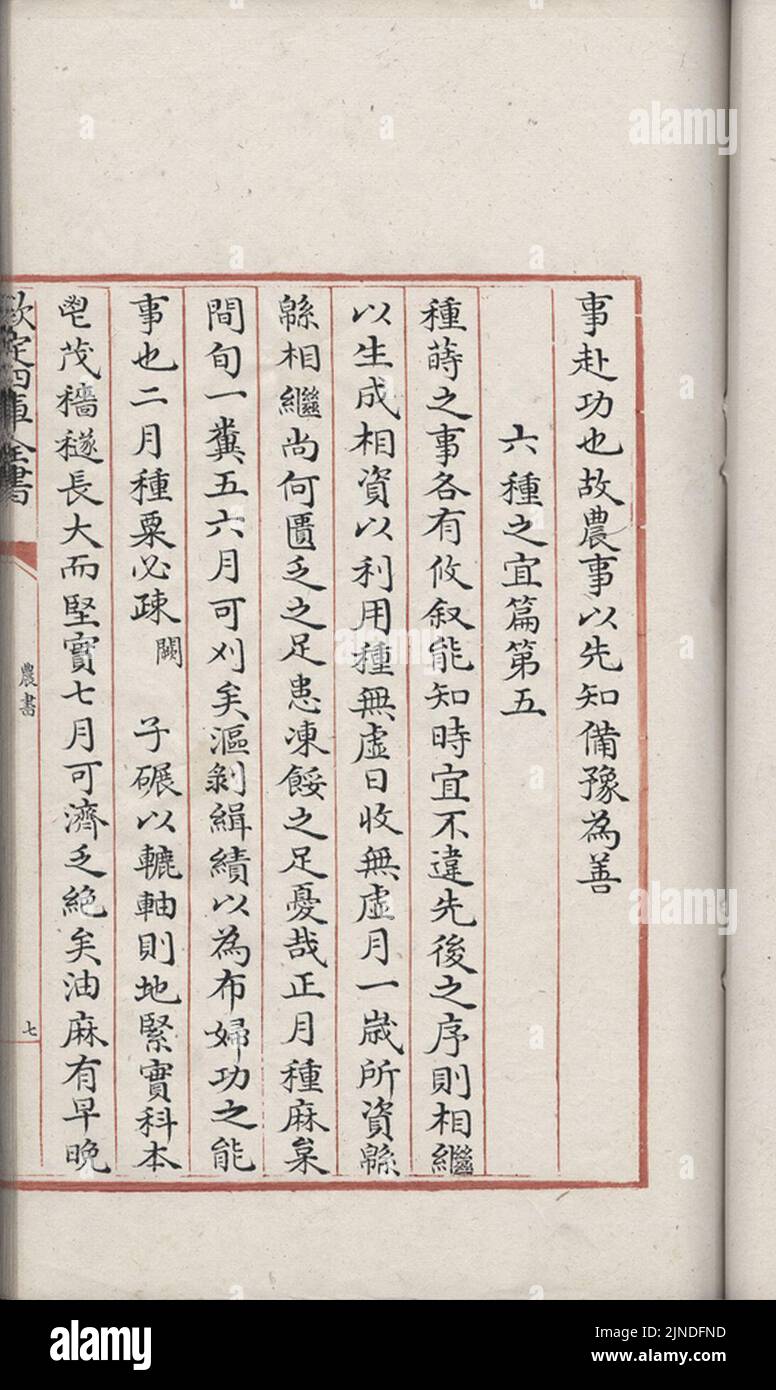 事赴功也故農事以先知備豫為善
六種之宜篇第五
種蒔之事各有攸叙能知時宜不違先後之序則相繼
以生成相資以利用種無虛日收無虛月一歲所資緜
緜相繼尚何匱乏之足患凍餒之足憂哉正月種麻枲
間旬一糞五六月可刈矣漚剝緝績以為布婦功之能
事也二月種粟必疎闕 子碾以轆軸則地緊實科本
鬯茂穡穟長大而堅實七月可濟乏絶矣油麻有早晚
欽定四庫全書
農書
七
a alamy
alamy
Image ID: 2JNDFND
www.alamy.com